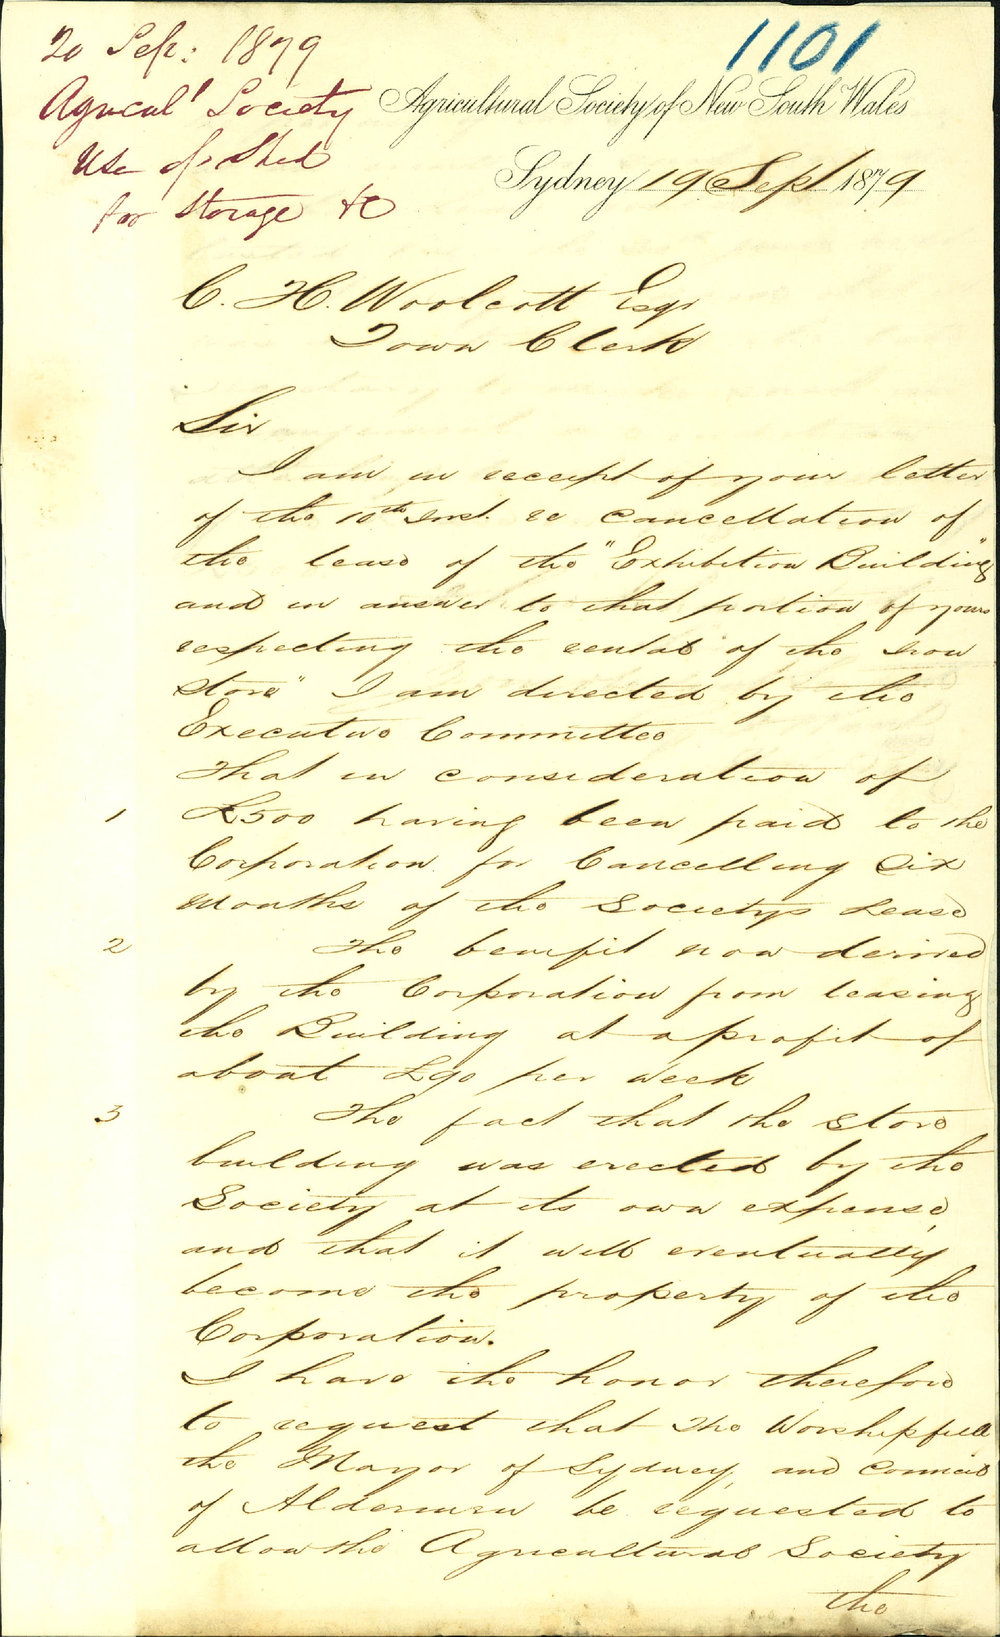 1101
20 Sep: 1879
Agricul' Society
Use of Shed
for Storage &c
Agricultural Society of New South Wales
Sydney 19 Sept 1879
C. H. Woolcott Esqr
Town Clerk
Sir
I am in receipt of your letter
of the 10th Inst. re cancellation of
the lease of the "Exhibition Building"
and in answer to that portion of yours
respecting the rental of the Iron
Store" I am directed by the
Executive Committee
That in consideration of
1 £500 having been paid to the
Corporation for Cancelling Six
Months of the Societys Lease
2 The benefit now derived
by the Corporation from leasing
the Building at a profit of
about £90 per week
3 The fact that the Store
building was erected by the
Society at its own expense,
and that it will eventually
become the property of the
Corporation.
I have the honor therefore
to request that The Worshipfull
the Mayor of Sydney, and Council
of Aldermen be requested to
allow the Agricultural Society
the